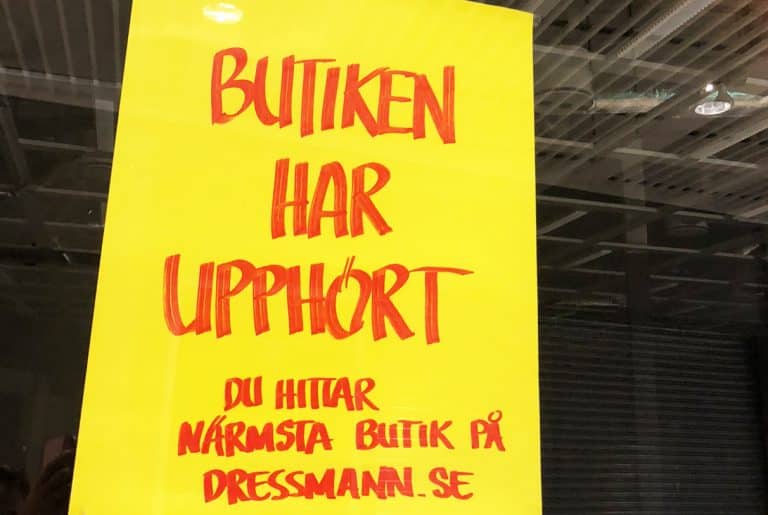 BUTIKEN
HAR
UPPHÖRT
DU HITTAR
NÄRMSTA BUTIK PÅ
DRESSMANN.SE